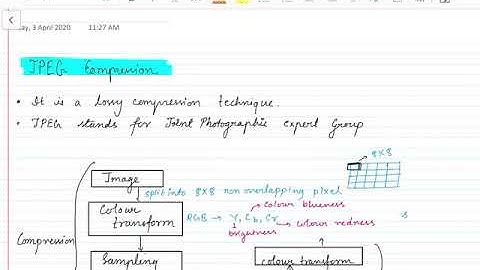 ay, 3 April 2020 11:27 AM
JPEG Compression
• It is a lossy compression technique.
• JPEG stands for Joint Photographic Expert Group
8x8
Image
split into 8x8 non overlapping pixel
colour blueness
Colour transform
RGB → Y, Cb, Cr → colour redness
brightness
Compression
Sampling
colour transform